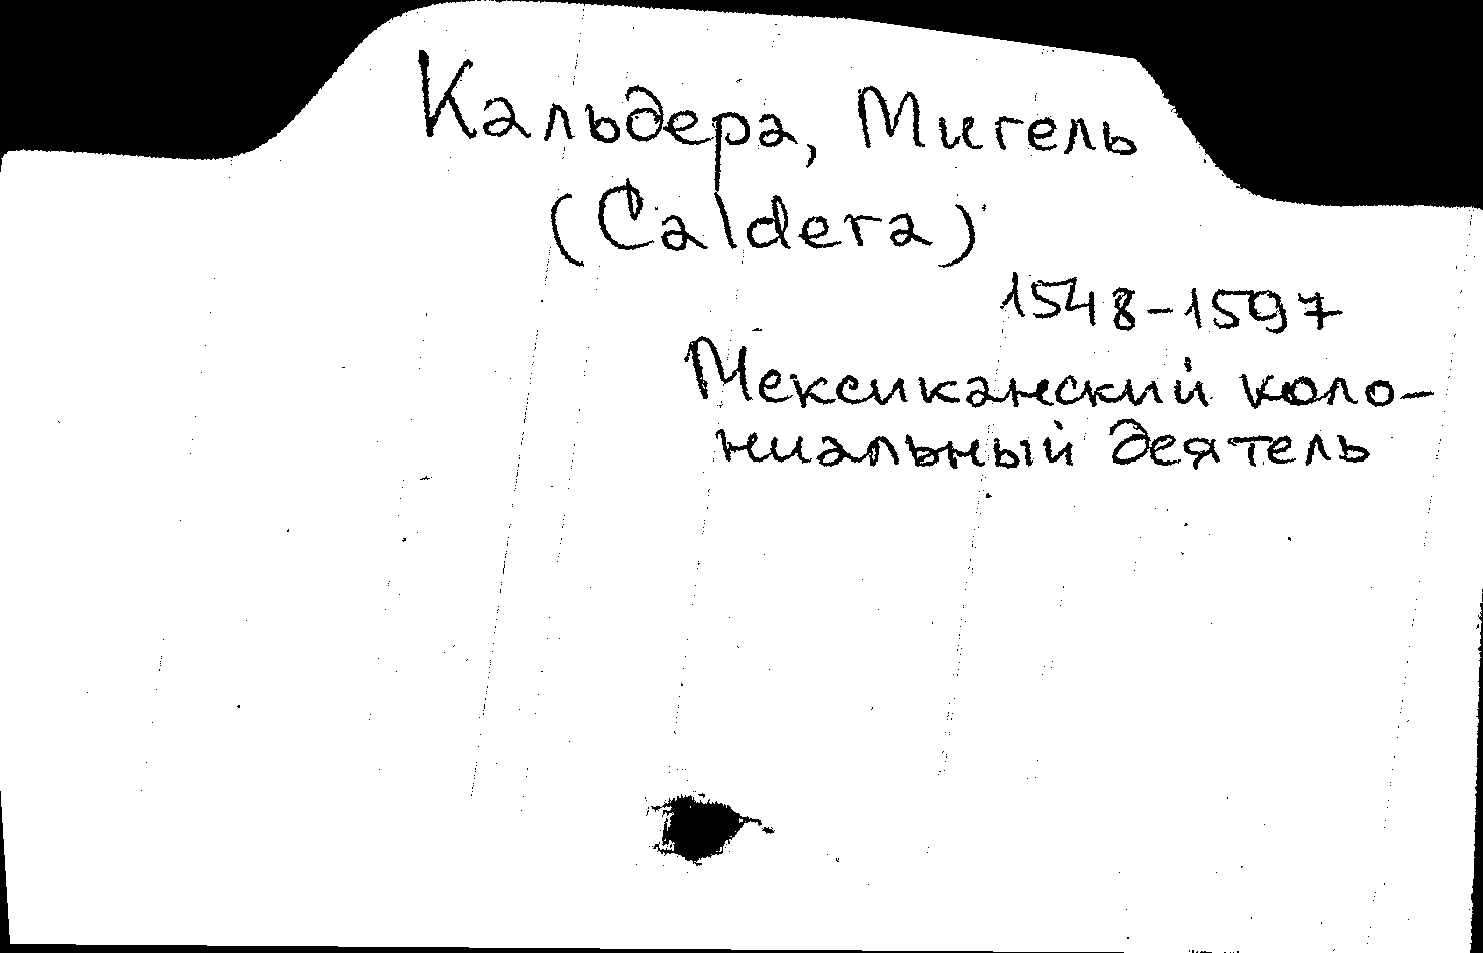 Кальдера, Мигель
(Caldera)
1548-1597
Мексиканский коло-
ниальный деятель